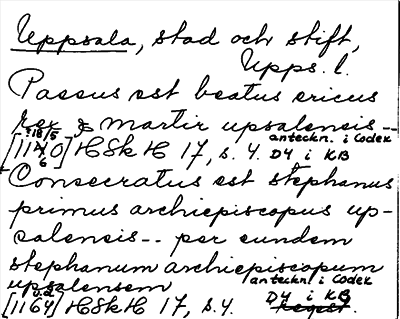 Uppsala, stad och stift,
Upps. l.
Passus est beatus ericus
rex & martir upsalensis --
[1160 18/5] HSH 17, s. 4. anteckn. i Codex
D4 i KB
Consecratus est stephanus
primus archiepiscopus up-
salensis -- per eundem
stephanum archiepiscopum
upsalensem
[1164 u.d.] HSH 17, s. 4. anteckn. i Codex
D4 i KB